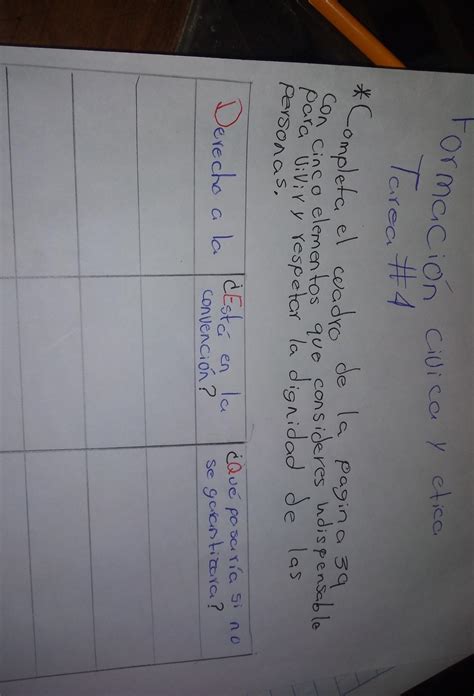 Formación civica y etica
Tarea #4
*Completa el cuadro de la pagina 39
con cinco elementos que consideres indispensable
para vivir y respetar la dignidad de las
personas.
Derecho a la
¿Está en la
convención?
¿Qué pasaría si no
se garantizara?